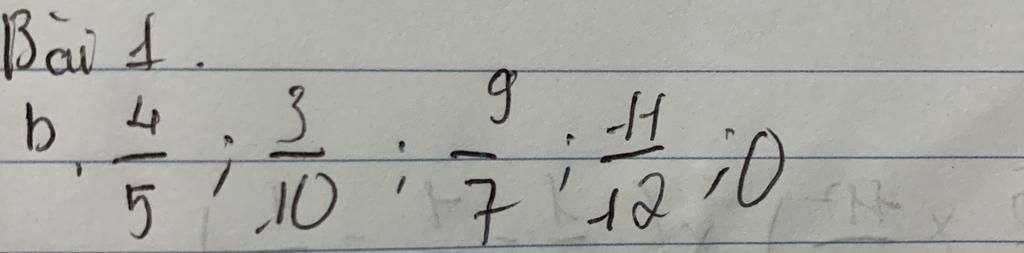 Bài 1.
b, 4/5 ; 3/10 ; 9/7 ; -11/12 ; 0